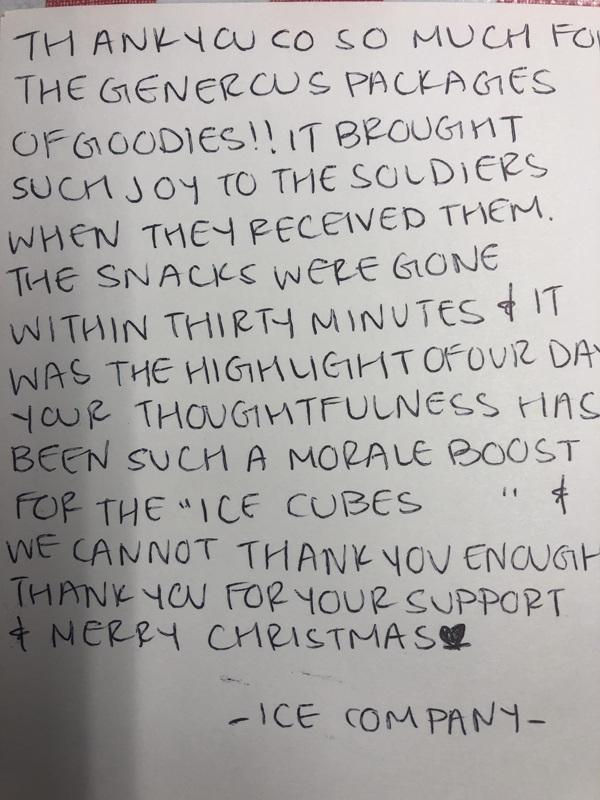 THANK YOU CO SO MUCH FO
THE GENEROUS PACKAGES
OF GOODIES!! IT BROUGHT
SUCH JOY TO THE SOLDIERS
WHEN THEY RECEIVED THEM.
THE SNACKS WERE GONE
WITHIN THIRTY MINUTES & IT
WAS THE HIGHLIGHT OF OUR DAY
YOUR THOUGHTFULNESS HAS
BEEN SUCH A MORALE BOOST
FOR THE "ICE CUBES " &
WE CANNOT THANK YOU ENOUGH
THANK YOU FOR YOUR SUPPORT
& MERRY CHRISTMAS♥
-ICE COMPANY-